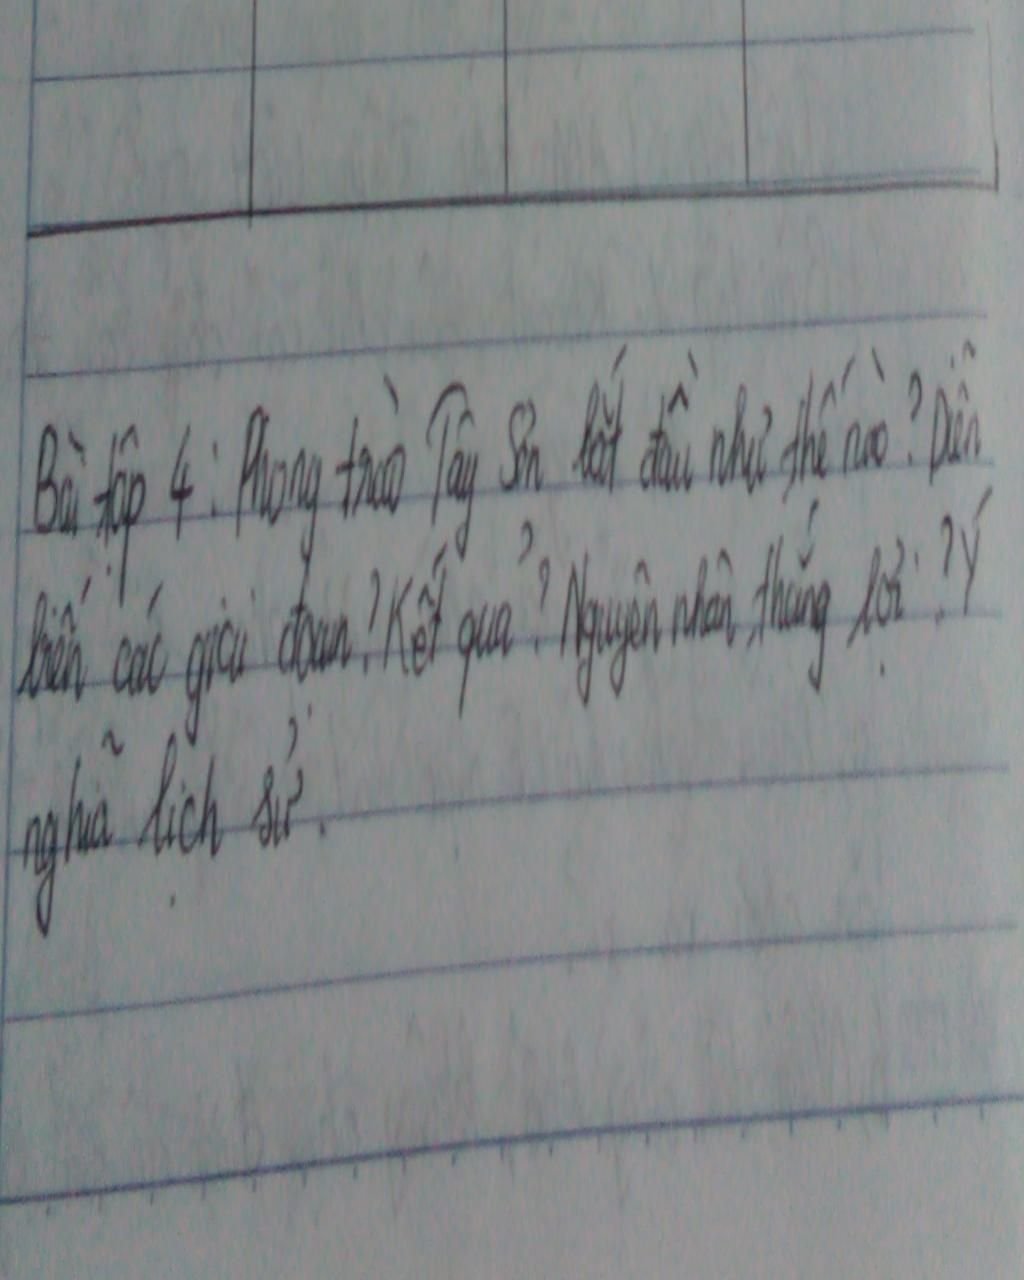 Bài tập 4: Phong trào Tây Sơn bắt đầu như thế nào? Diễn
biến các giai đoạn? Kết quả? Nguyên nhân thắng lợi? Ý
nghĩa lịch sử.